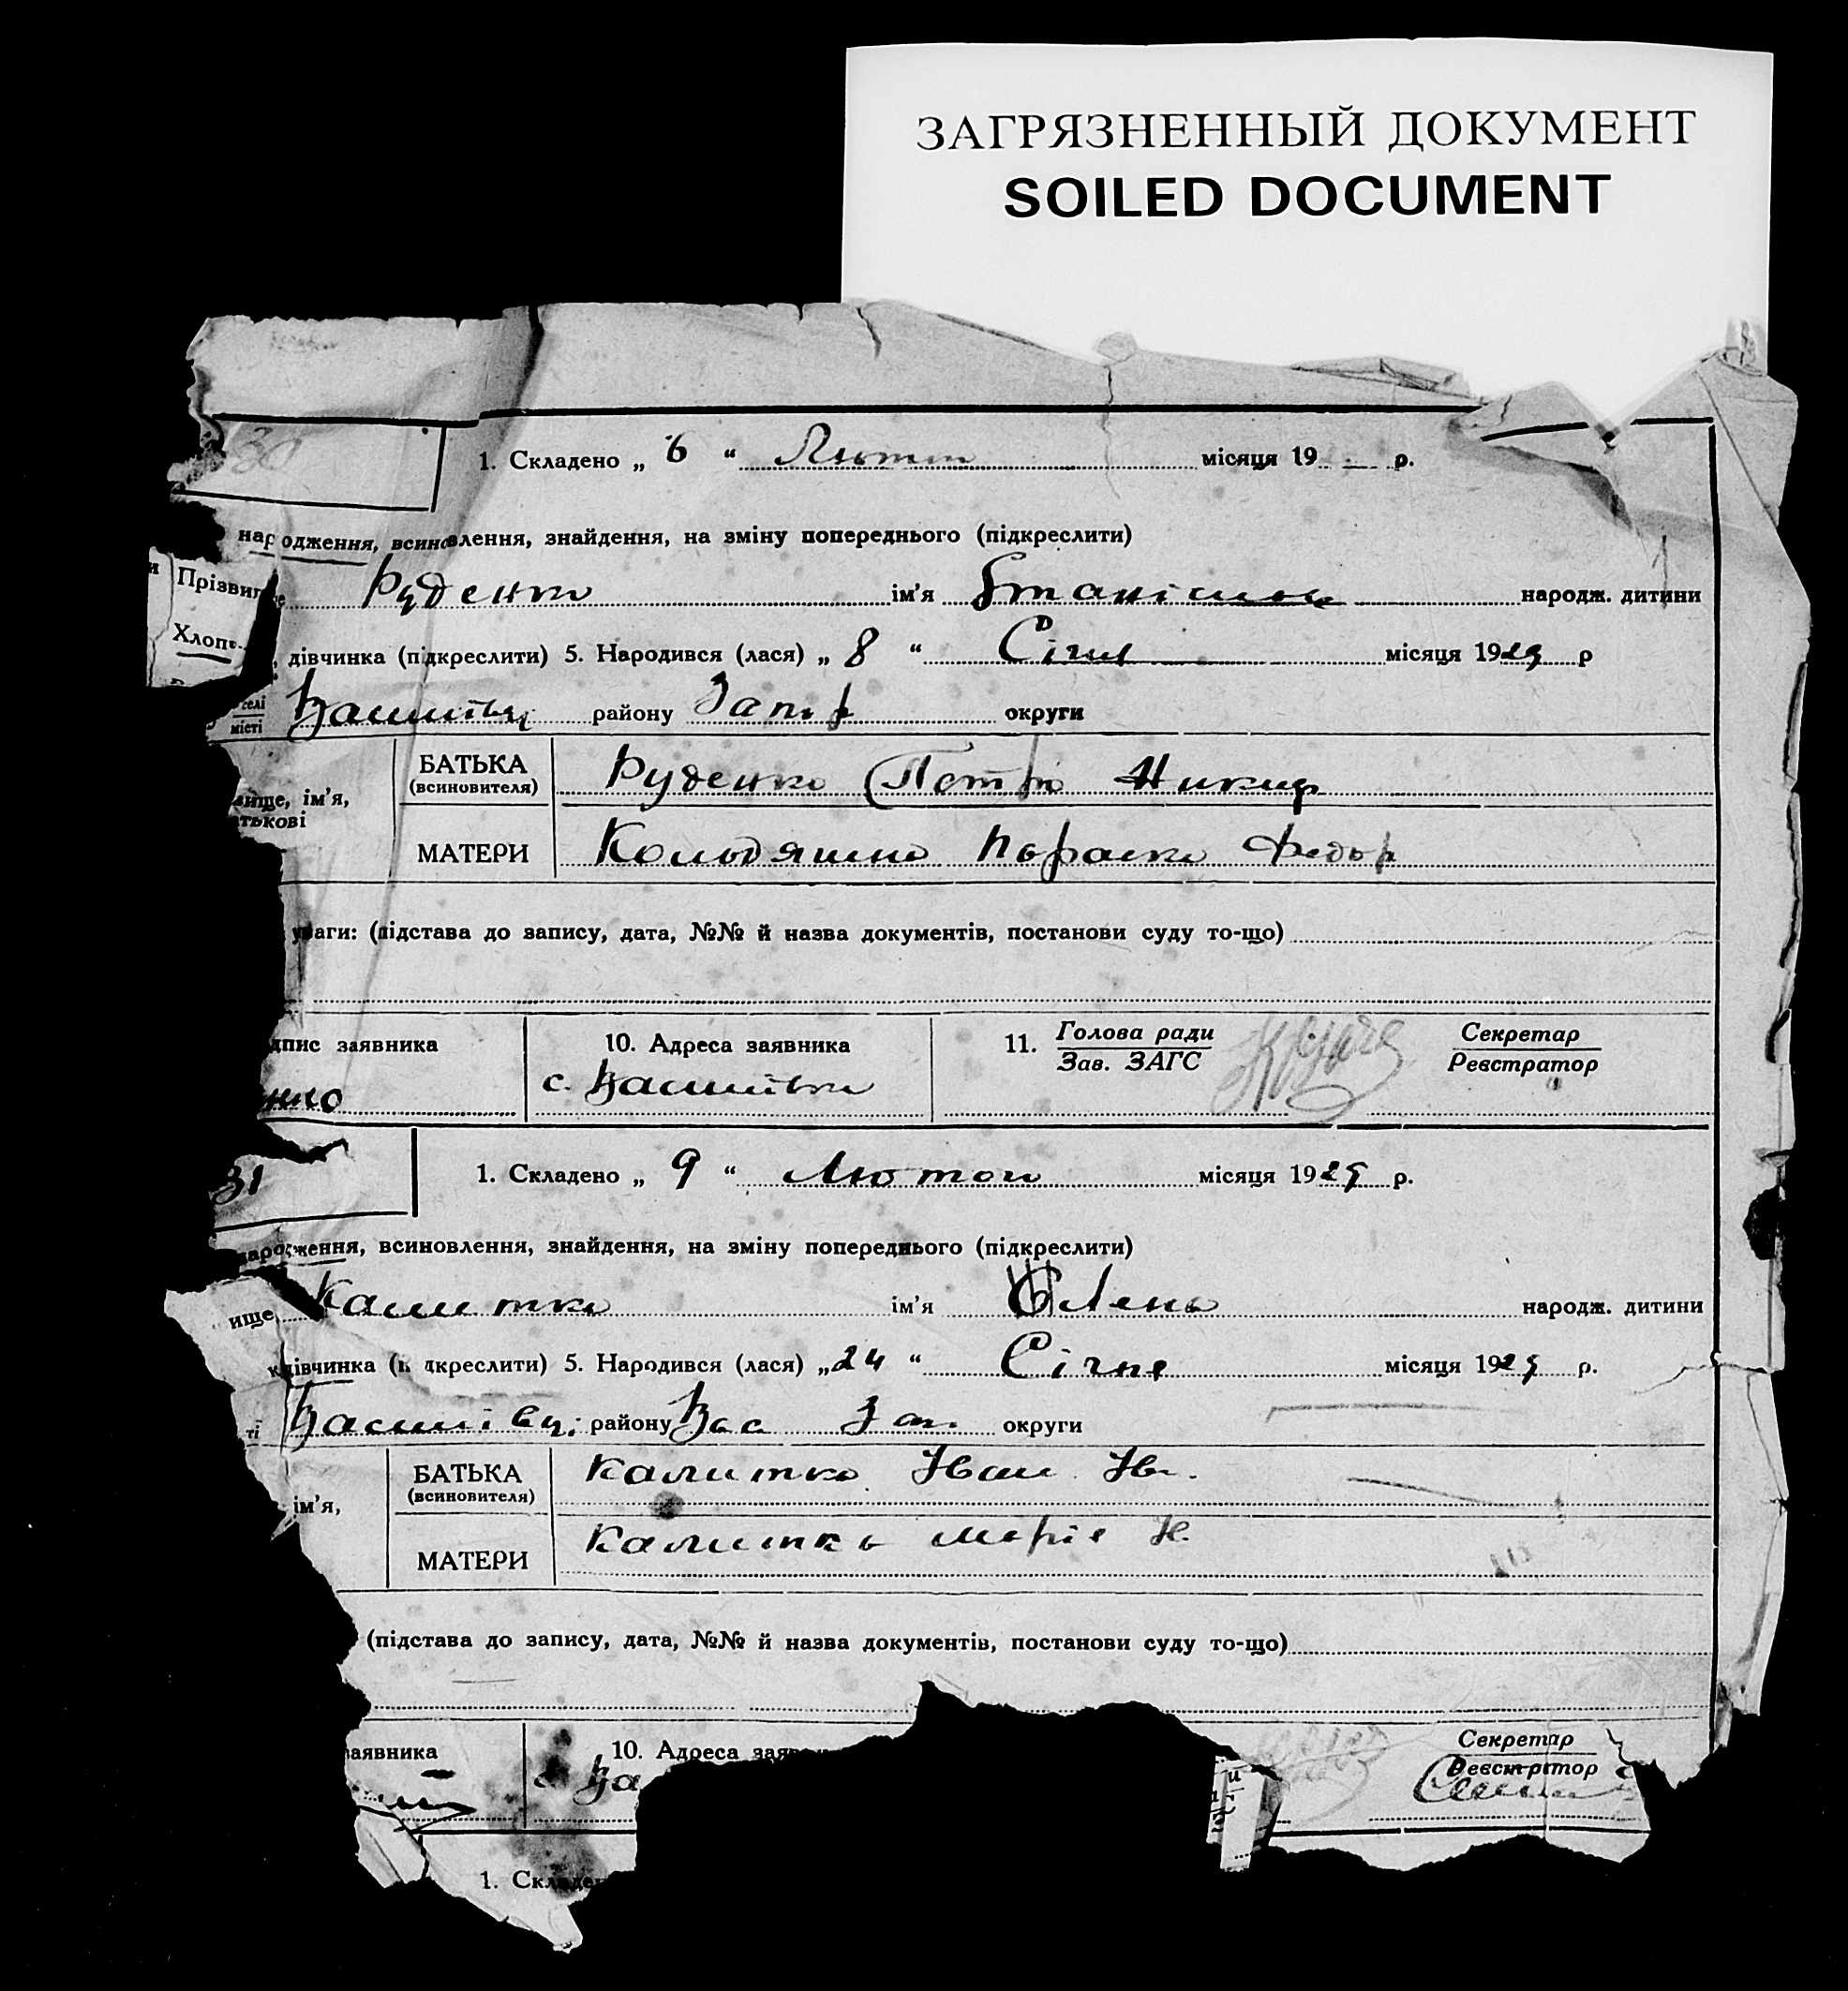 ЗАГРЯЗНЕННЫЙ ДОКУМЕНТ
SOILED DOCUMENT
30
1. Складено „ 6 “ місяця 19 р.
народження, всиновлення, знайдення, на зміну попереднього (підкреслити)
Прізвище Руденко ім'я народж. дитини
Хлоп
дівчинка (підкреслити) 5. Народився (лася) „ 8 “ Січня місяця 1929 р
селі
місті
району Запор округи
БАТЬКА
(всиновителя)
Руденко Петро Никиф
вище, ім'я,
тькові
МАТЕРИ
Параска Федор
уваги: (підстава до запису, дата, №№ й назва документів, постанови суду то-що)
дпис заявника
10. Адреса заявника
11. Голова ради
Зав. ЗАГС
Секретар
Реєстратор
с. Василівка
енко
31
1. Складено „ 9 “ Лютого місяця 1929 р.
народження, всиновлення, знайдення, на зміну попереднього (підкреслити)
ище Калитка ім'я Олена народж. дитини
дівчинка (підкреслити) 5. Народився (лася) „ 24 “ Січня місяця 1929 р.
ті Василівці району Вас Зап. округи
БАТЬКА
(всиновителя)
Калитка Іван Ів.
ім'я,
МАТЕРИ
Калитка Марія Н.
(підстава до запису, дата, №№ й назва документів, постанови суду то-що)
заявника
10. Адреса заяв
Секретар
Реєстратор
с. Ва
1. Складе